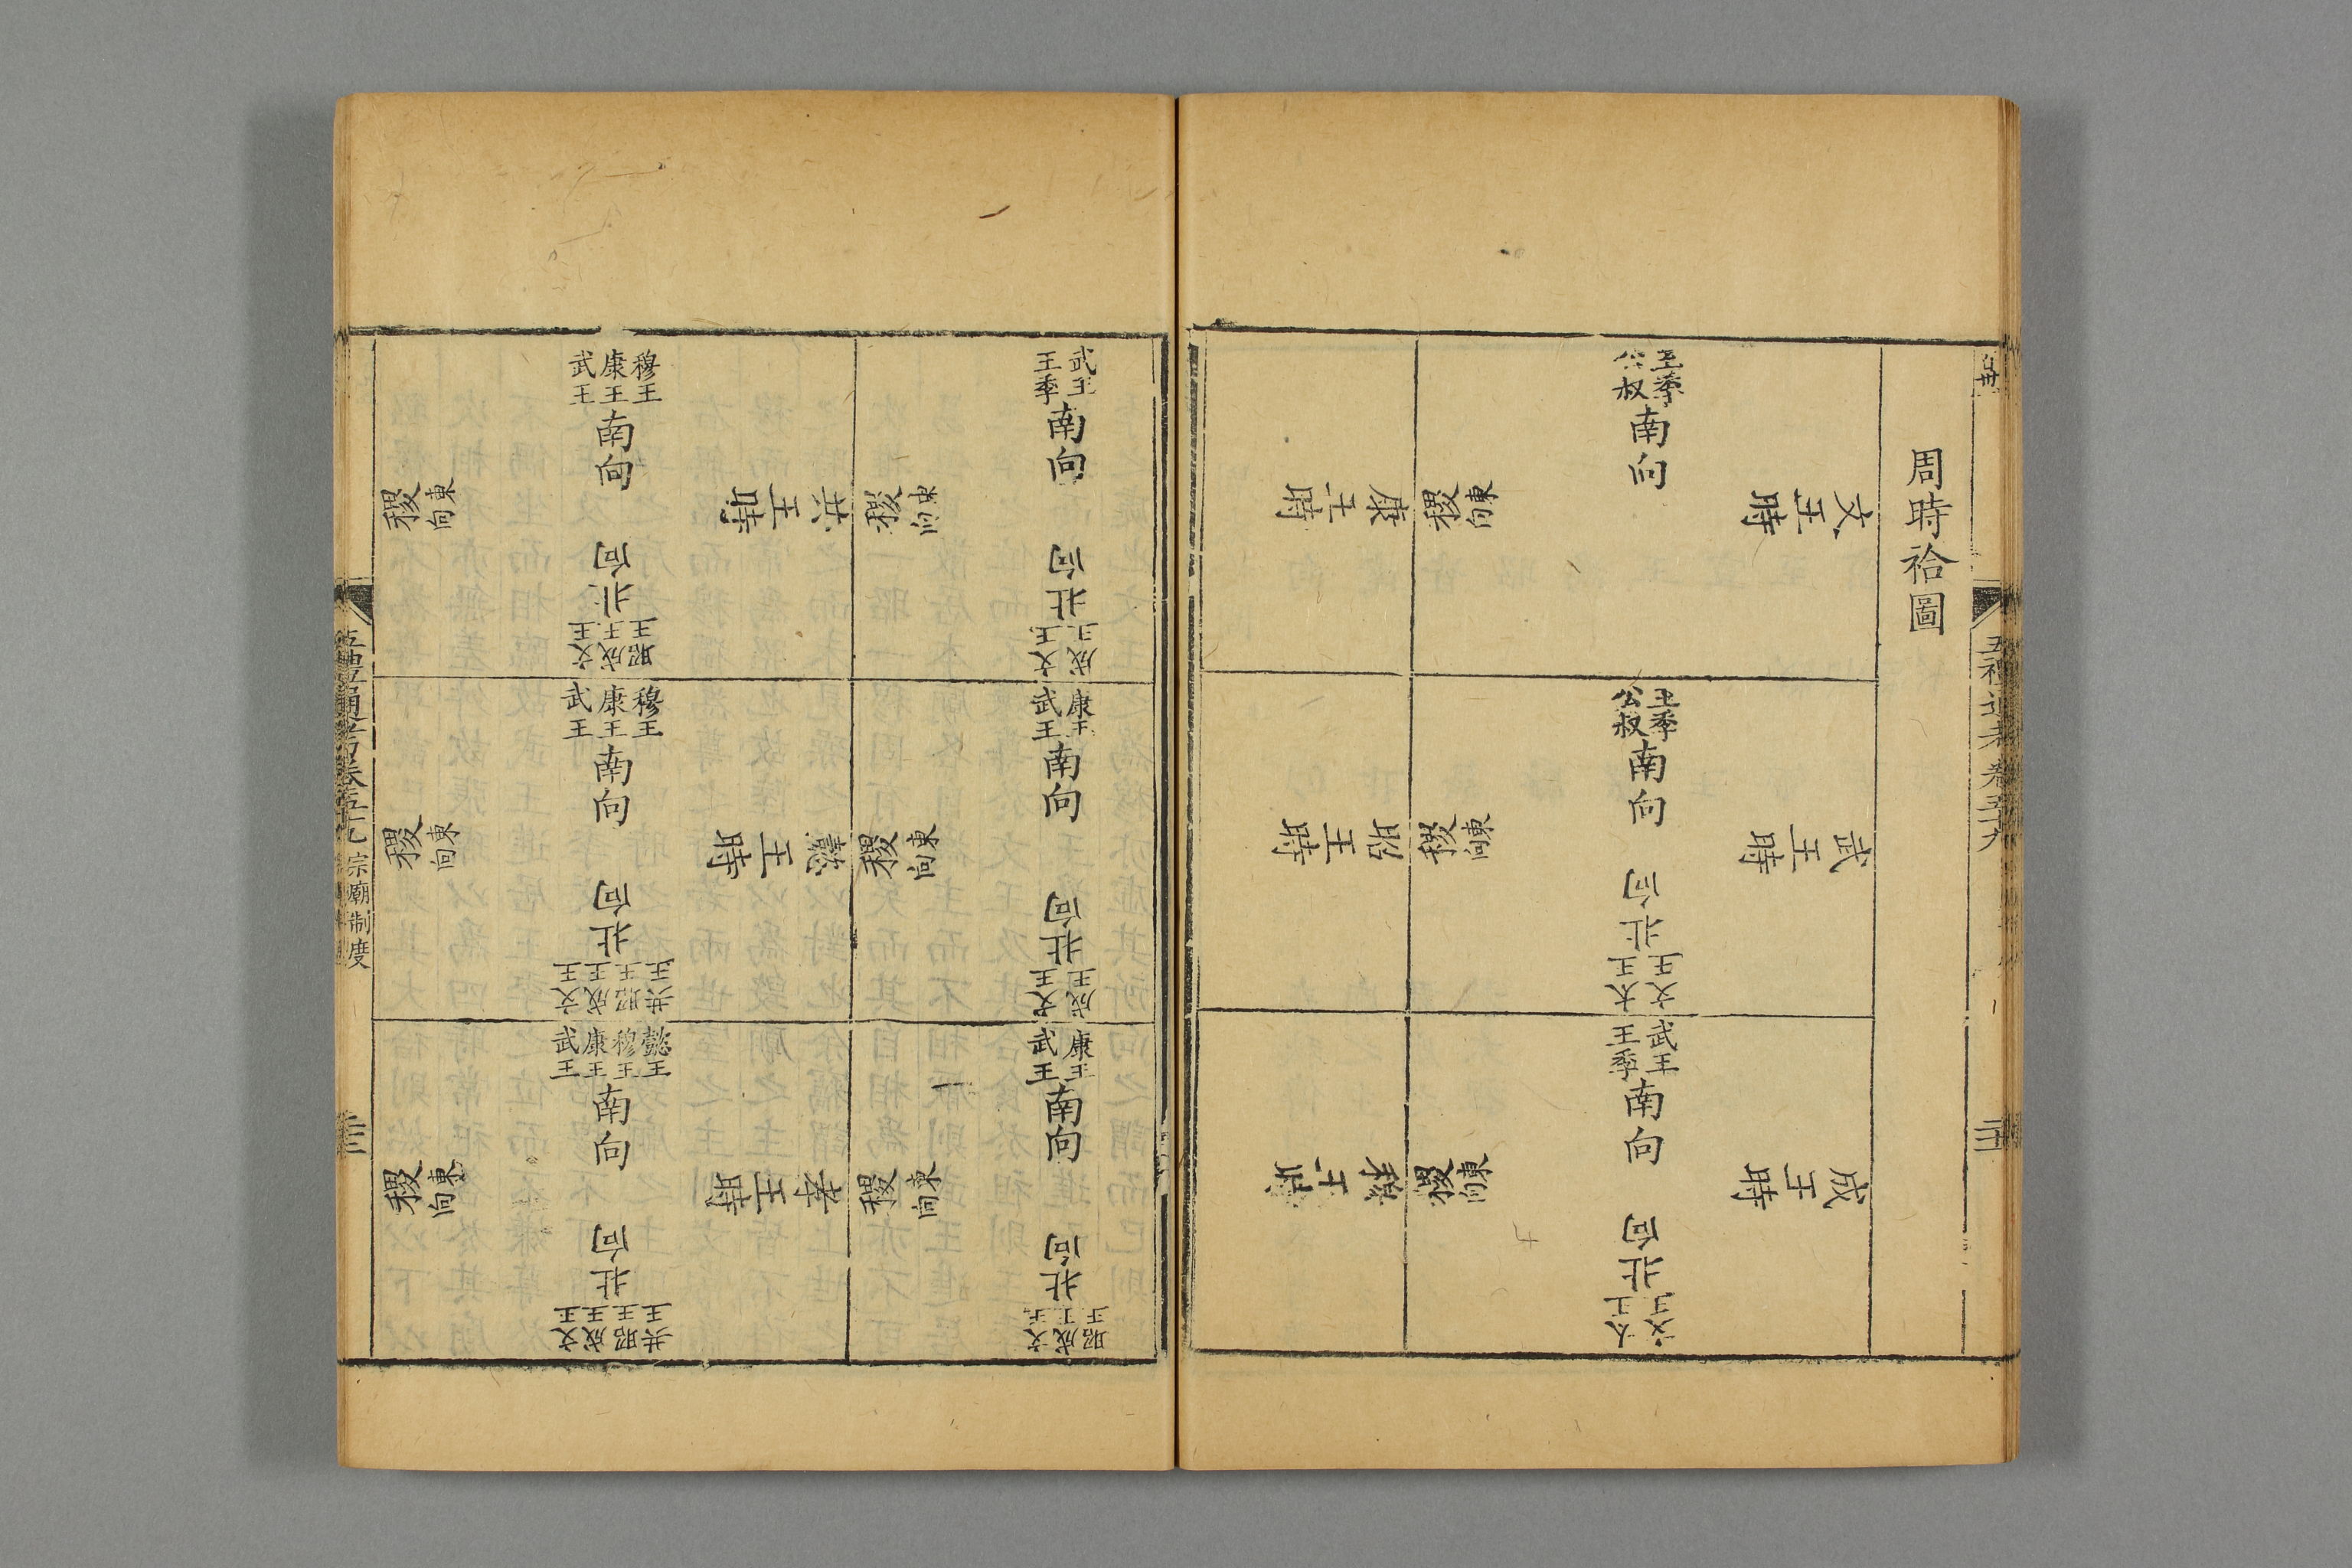 五禮通考卷五十九
周時祫圖
文王時
王季 公叔 南向
稷東向
武王時
王季 公叔 南向
稷東向
文王 太王 北向
成王時
武王 王季 南向
稷東向
文王 北向
康王時
武王 王季 南向
稷東向
成王 文王 北向
昭王時
康王 武王 南向
稷東向
成王 文王 北向
穆王時
康王 武王 南向
稷東向
昭王 成王 文王 北向
共王時
穆王 康王 武王 南向
稷東向
昭王 成王 文王 北向
懿王時
穆王 康王 武王 南向
稷東向
共王 昭王 成王 文王 北向
孝王時
懿王 穆王 康王 武王 南向
稷東向
共王 昭王 成王 文王 北向
五禮通考卷五十九 宗廟制度